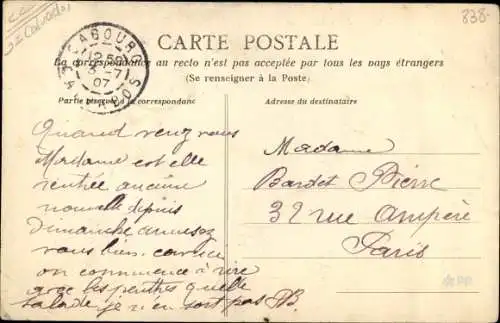 Calvados
838-
CABOURG
12 50
3 -7
07
CALVADOS
CARTE POSTALE
La correspondance au recto n'est pas acceptée par tous les pays étrangers
(Se renseigner à la Poste)
Partie réservée à la correspondance
Adresse du destinataire
Quand venez vous
Madame est elle
rentrée aucune
nouvelle depuis
Dimanche amusez
vous bien
on commence à rire
avec les quelle
salade je n'en sort pas B.
Madame
Bardet Pierre
32 rue Ampère
Paris